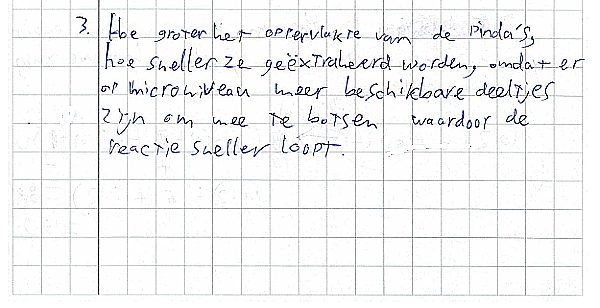 3. Hoe groter het oppervlakte van de pinda's,
hoe sneller ze geëxtraheerd worden, omdat er
op microniveau meer beschikbare deeltjes
zijn om mee te botsen waardoor de
reactie sneller loopt.